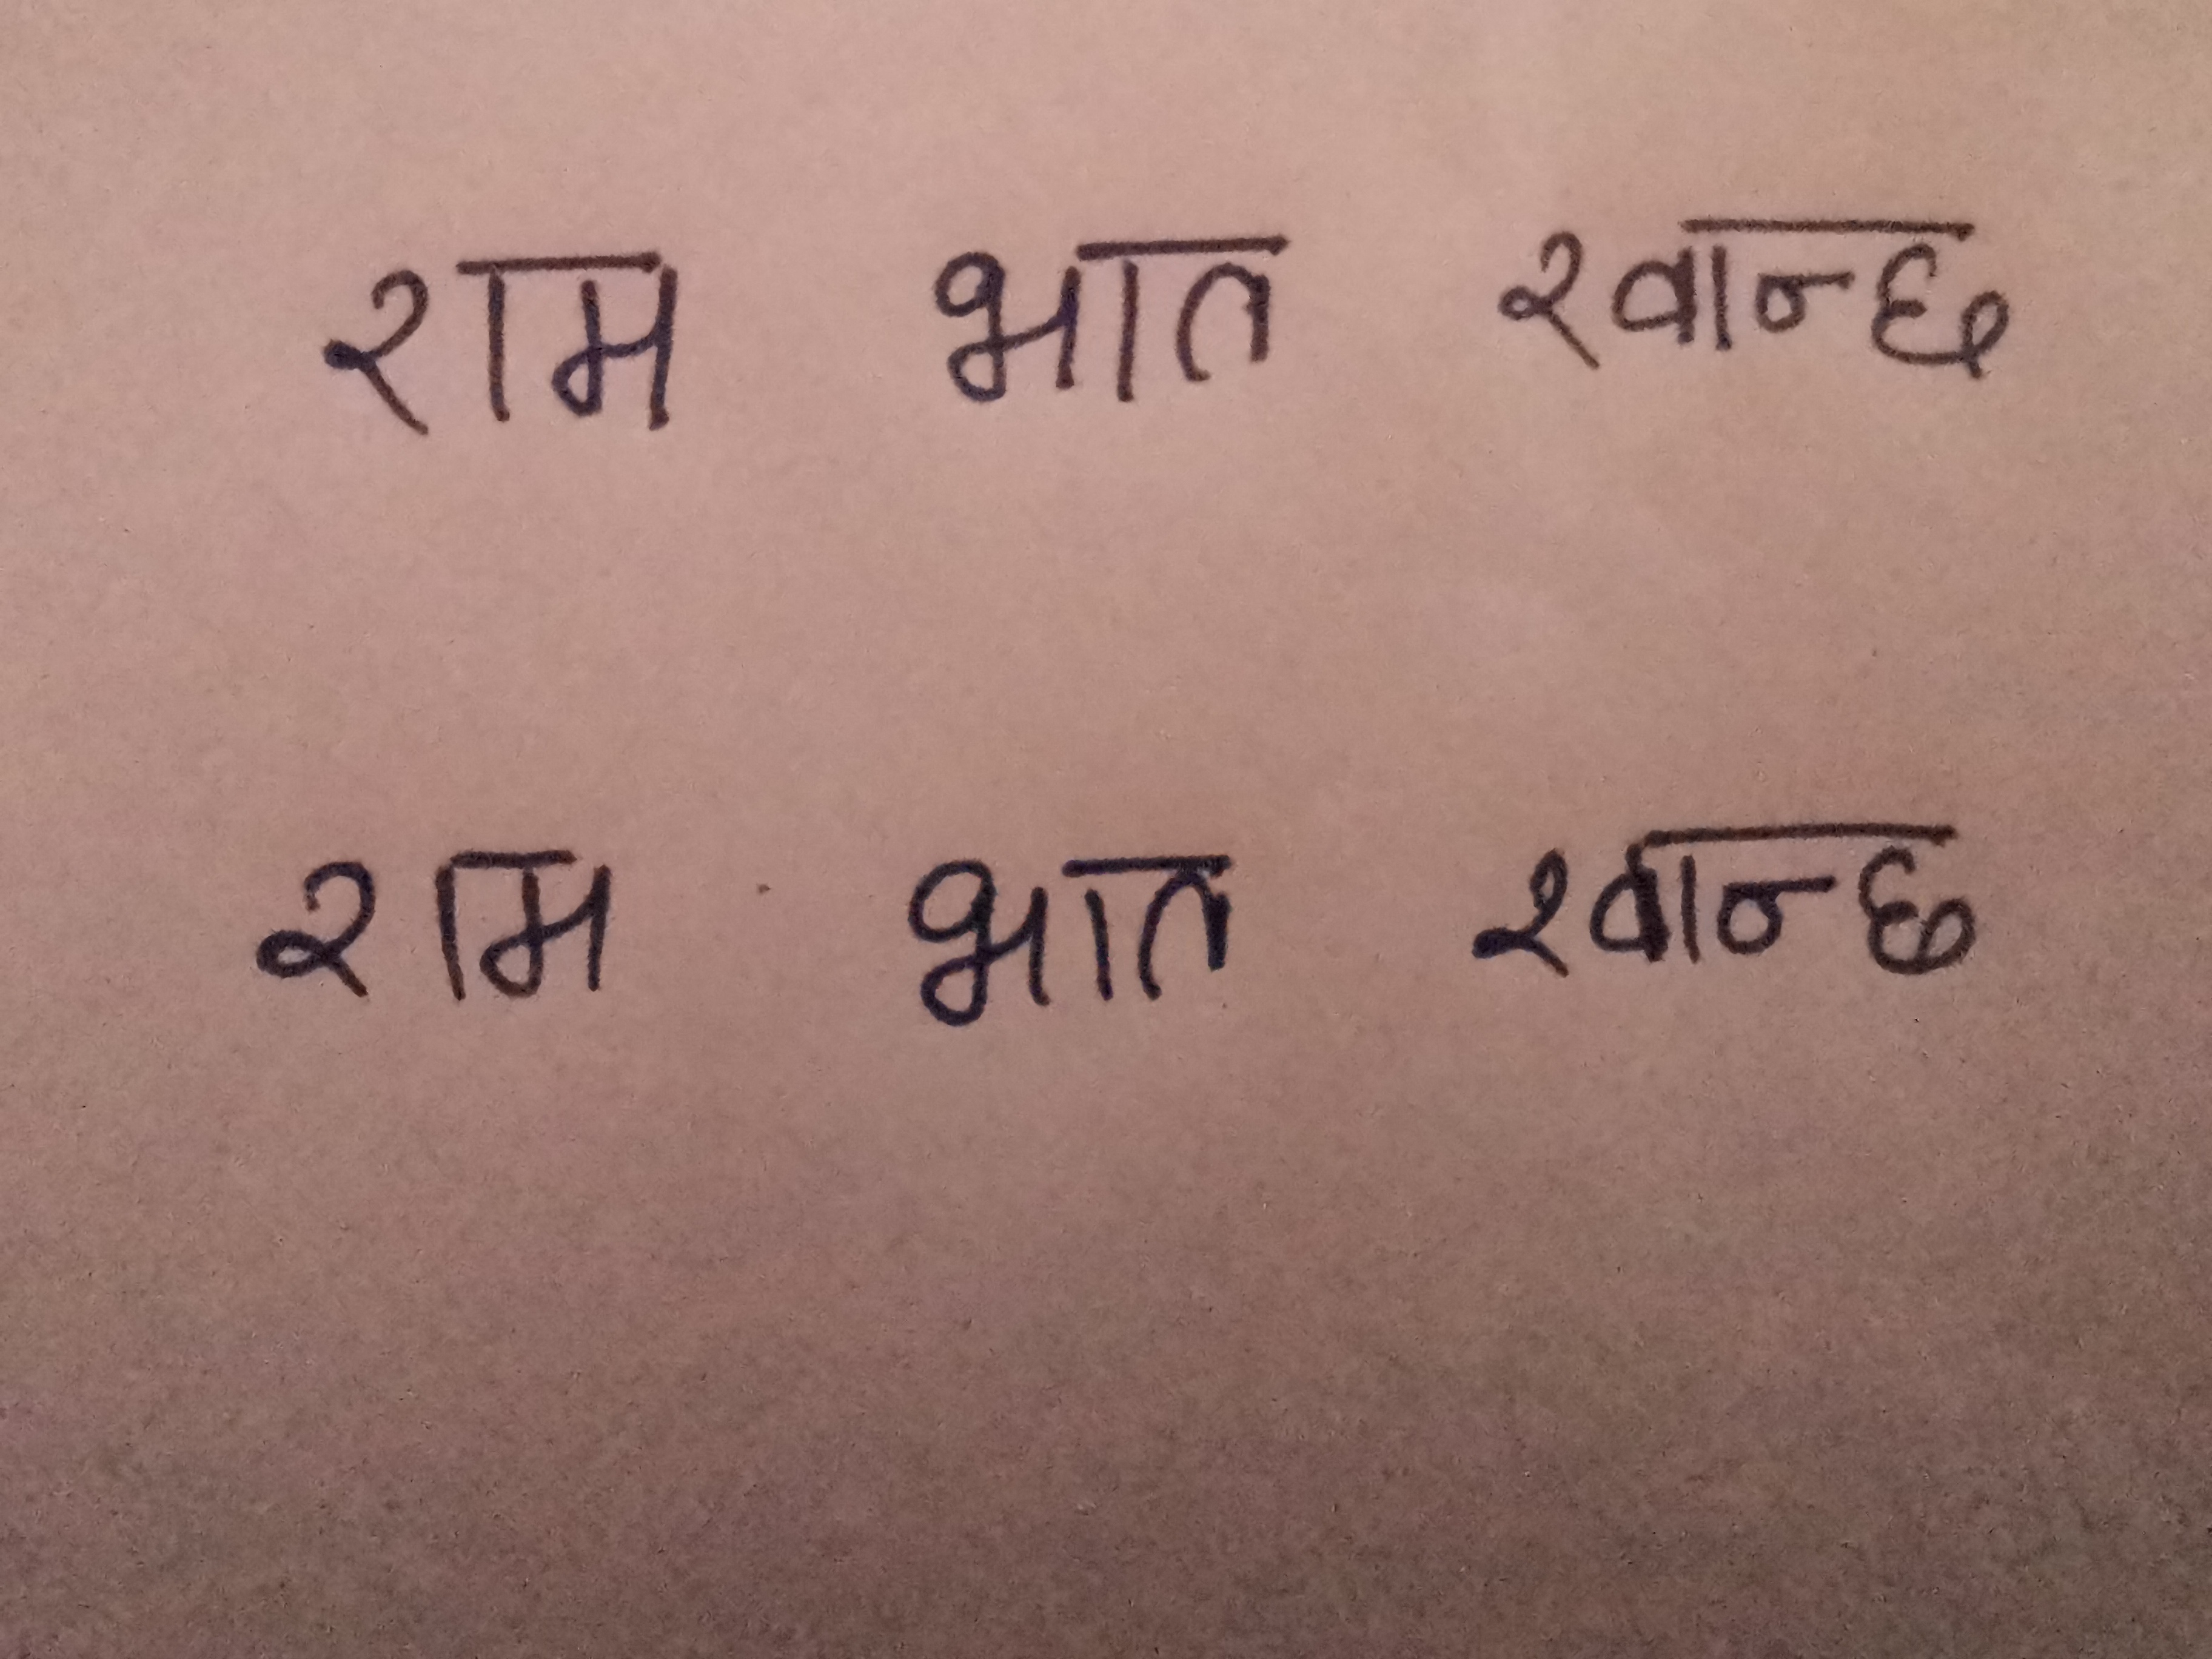 राम भात खान्छ
राम भात खान्छ